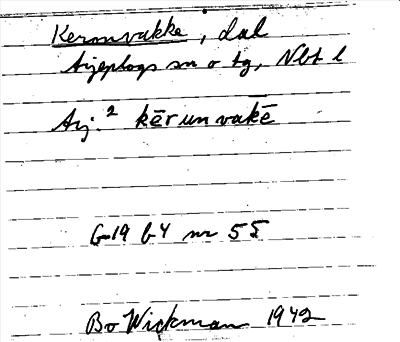 Keronvakke, dal
Arjeplogs sn o tg, Nbt l
Arj.² kērunvakē
G 19 b 4 nr 55
Bo Wickman 1942